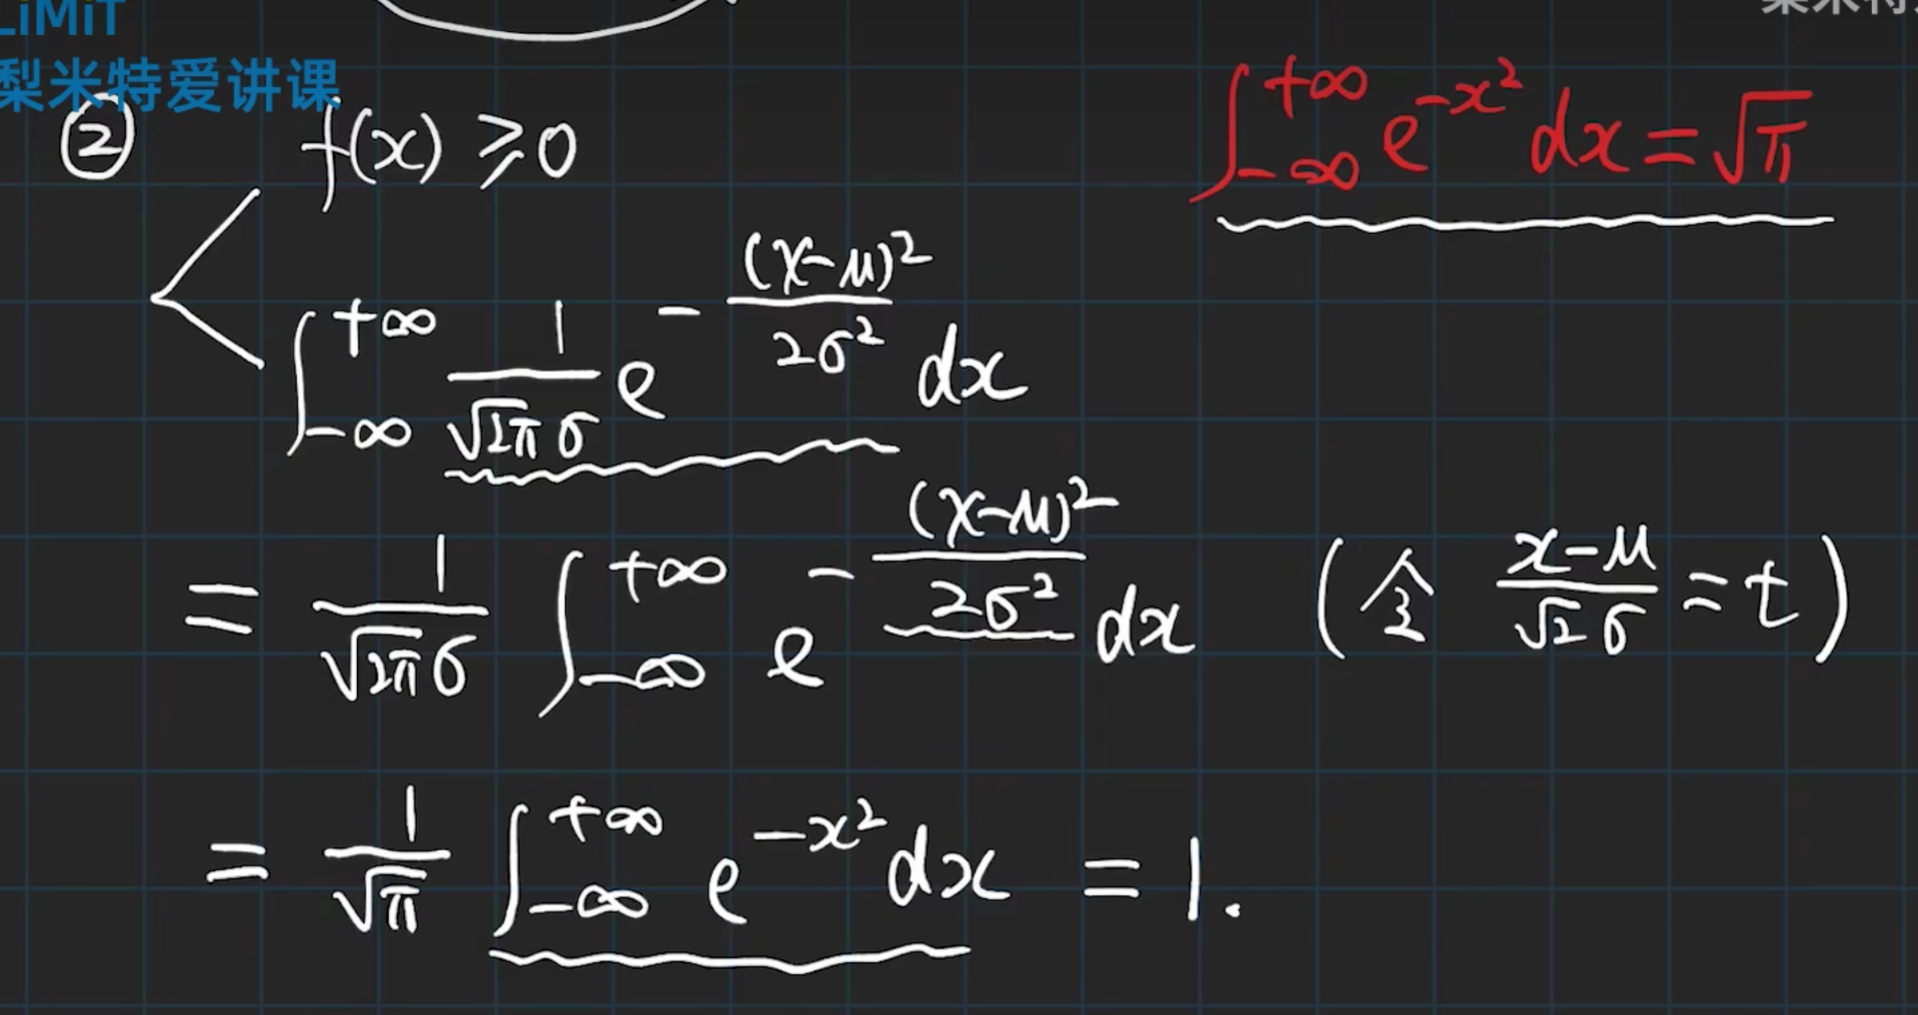 LiMiT
梨米特爱讲课
∫_{-∞}^{+∞} e^{-x²} dx = √π
② f(x) ≥ 0
∫_{-∞}^{+∞} \frac{1}{√(2π) σ} e^{-\frac{(x-μ)²}{2σ²}} dx
= \frac{1}{√(2π) σ} ∫_{-∞}^{+∞} e^{-\frac{(x-μ)²}{2σ²}} dx (令 \frac{x-μ}{√2 σ} = t)
= \frac{1}{√π} ∫_{-∞}^{+∞} e^{-x²} dx = 1.